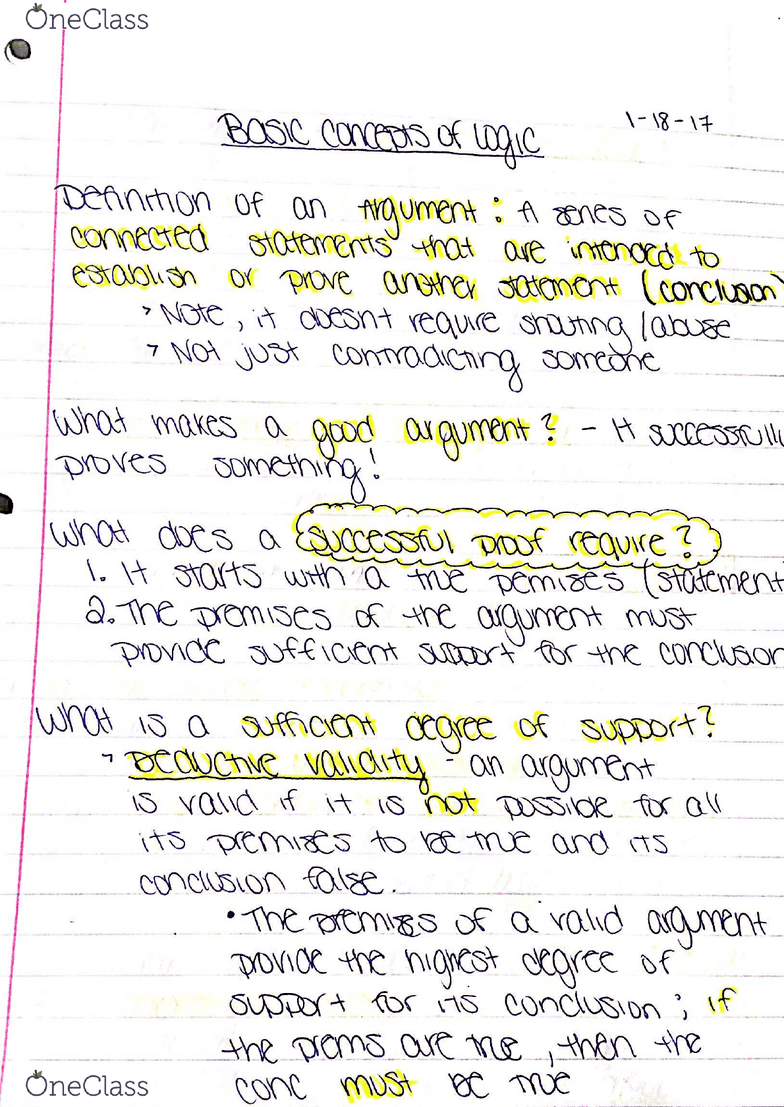 OneClass
Basic concepts of logic 1-18-17
Definition of an Argument: A series of
connected statements that are intended to
establish or prove another statement (conclusion)
> Note, it doesn't require shouting/abuse
> Not just contradicting someone
What makes a good argument? - It successfully
proves something!
What does a successful proof require?
1. It starts with a true pemises (statement
2. The premises of the argument must
provide sufficient support for the conclusion
What is a sufficient degree of support?
> Deductive validity - an argument
is valid if it is not possible for all
its premises to be true and its
conclusion false.
• The premises of a valid argument
provide the highest degree of
support for its conclusion; if
the prems are true, then the
conc must be true
OneClass